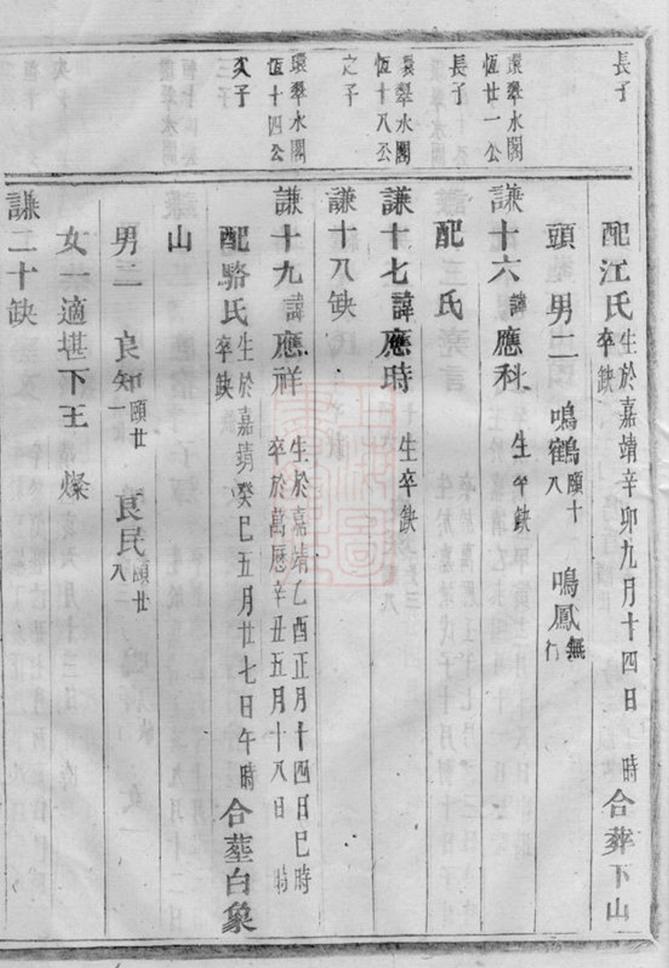 長子
配江氏生於嘉靖辛卯九月十四日 時卒缺合葬下山
頭 男二 鳴鶴頤十八 鳴鳳無行
環翠水閣恆廿一公長子
謙十六諱應科 生卒缺
配氏
環翠水閣恆十八公之子
謙十七諱應時 生卒缺
謙十八缺
環翠水閣恆十四公次子
謙十九諱應祥生於嘉靖乙酉正月十四日巳時卒於萬歷辛丑五月十八日 時
配駱氏生於嘉靖癸巳五月廿七日午時卒缺合塟白象
山
男二 良知頤廿一 良民頤廿八
女一適堪下王燦
謙二十缺